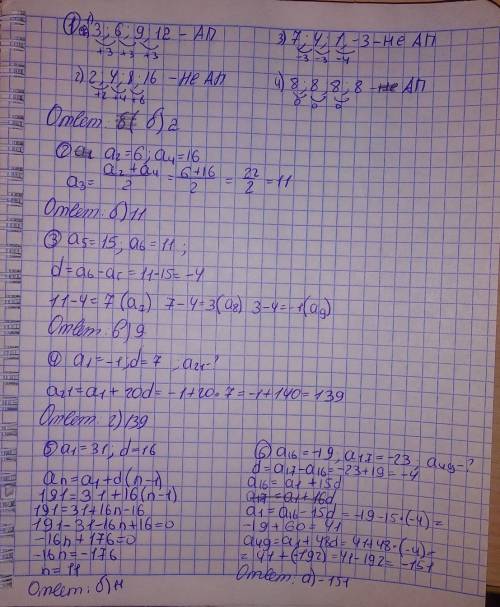 ① 1) 3, 6, 9, 12 - АП
+3 +3 +3
2) 2, 4, 8, 16 - Не АП
+2 +4 +8
3) 7, 4, 1, -3 - Не АП
-3 -3 -4
4) 8, 8, 8, 8 - АП
0 0 0
Ответ: б) 2
② a₂=6; a₄=16
a₃ = (a₂+a₄)/2 = (6+16)/2 = 22/2 = 11
Ответ: б) 11
③ a₅=15; a₆=11;
d=a₆-a₅=11-15=-4
11-4=7 (a₇) 7-4=3(a₈) 3-4=-1(a₉)
Ответ: в) 9
④ a₁=-1; d=7, a₂₁-?
a₂₁=a₁+20d=-1+20·7=-1+140=139
Ответ: г) 139
⑤ a₁=31; d=16
an=a₁+d(n-1)
191=31+16(n-1)
191=31+16n-16
191-31-16n+16=0
-16n+176=0
-16n=-176
n=11
Ответ: б)
⑥ a₁₆=-19, a₁₇=-23, a₄₉-?
d=a₁₇-a₁₆=-23+19=-4
a₁₆=a₁+15d
a₁₇=a₁+16d
a₁=a₁₆-15d=-19-15·(-4)=
-19+60=41
a₄₉=a₁+48d=41+48·(-4)=
=41+(-192)=41-192=-151
Ответ: а) -151